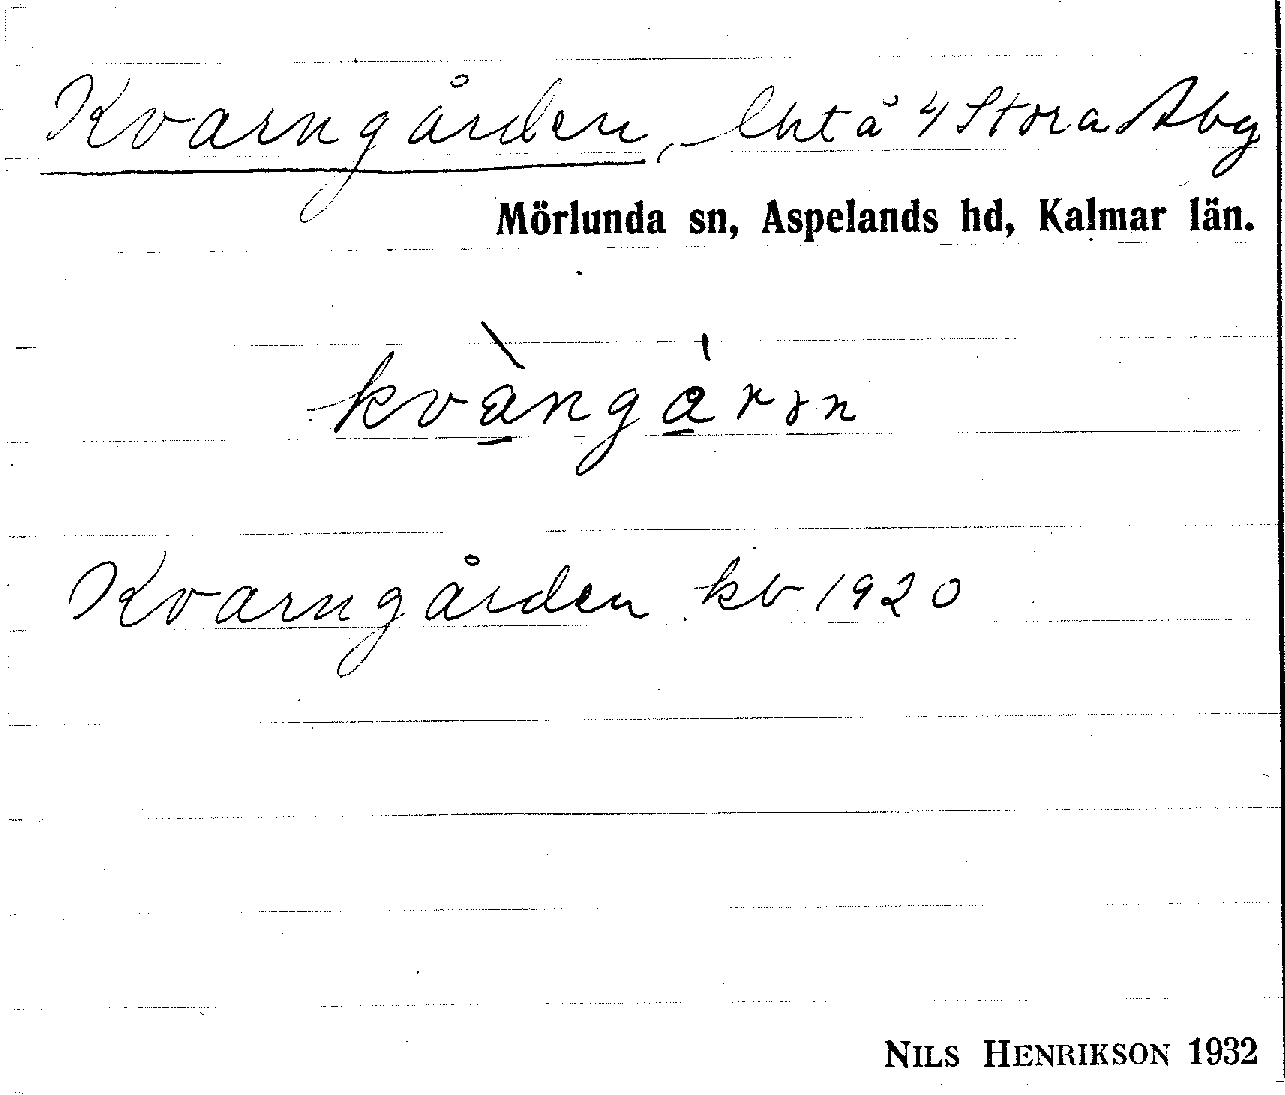 Kvarngården, lht å 4 Stora Åby
Mörlunda sn, Aspelands hd, Kalmar län.
kvàngàrn
Kvarngården kb 1920
NILS HENRIKSON 1932